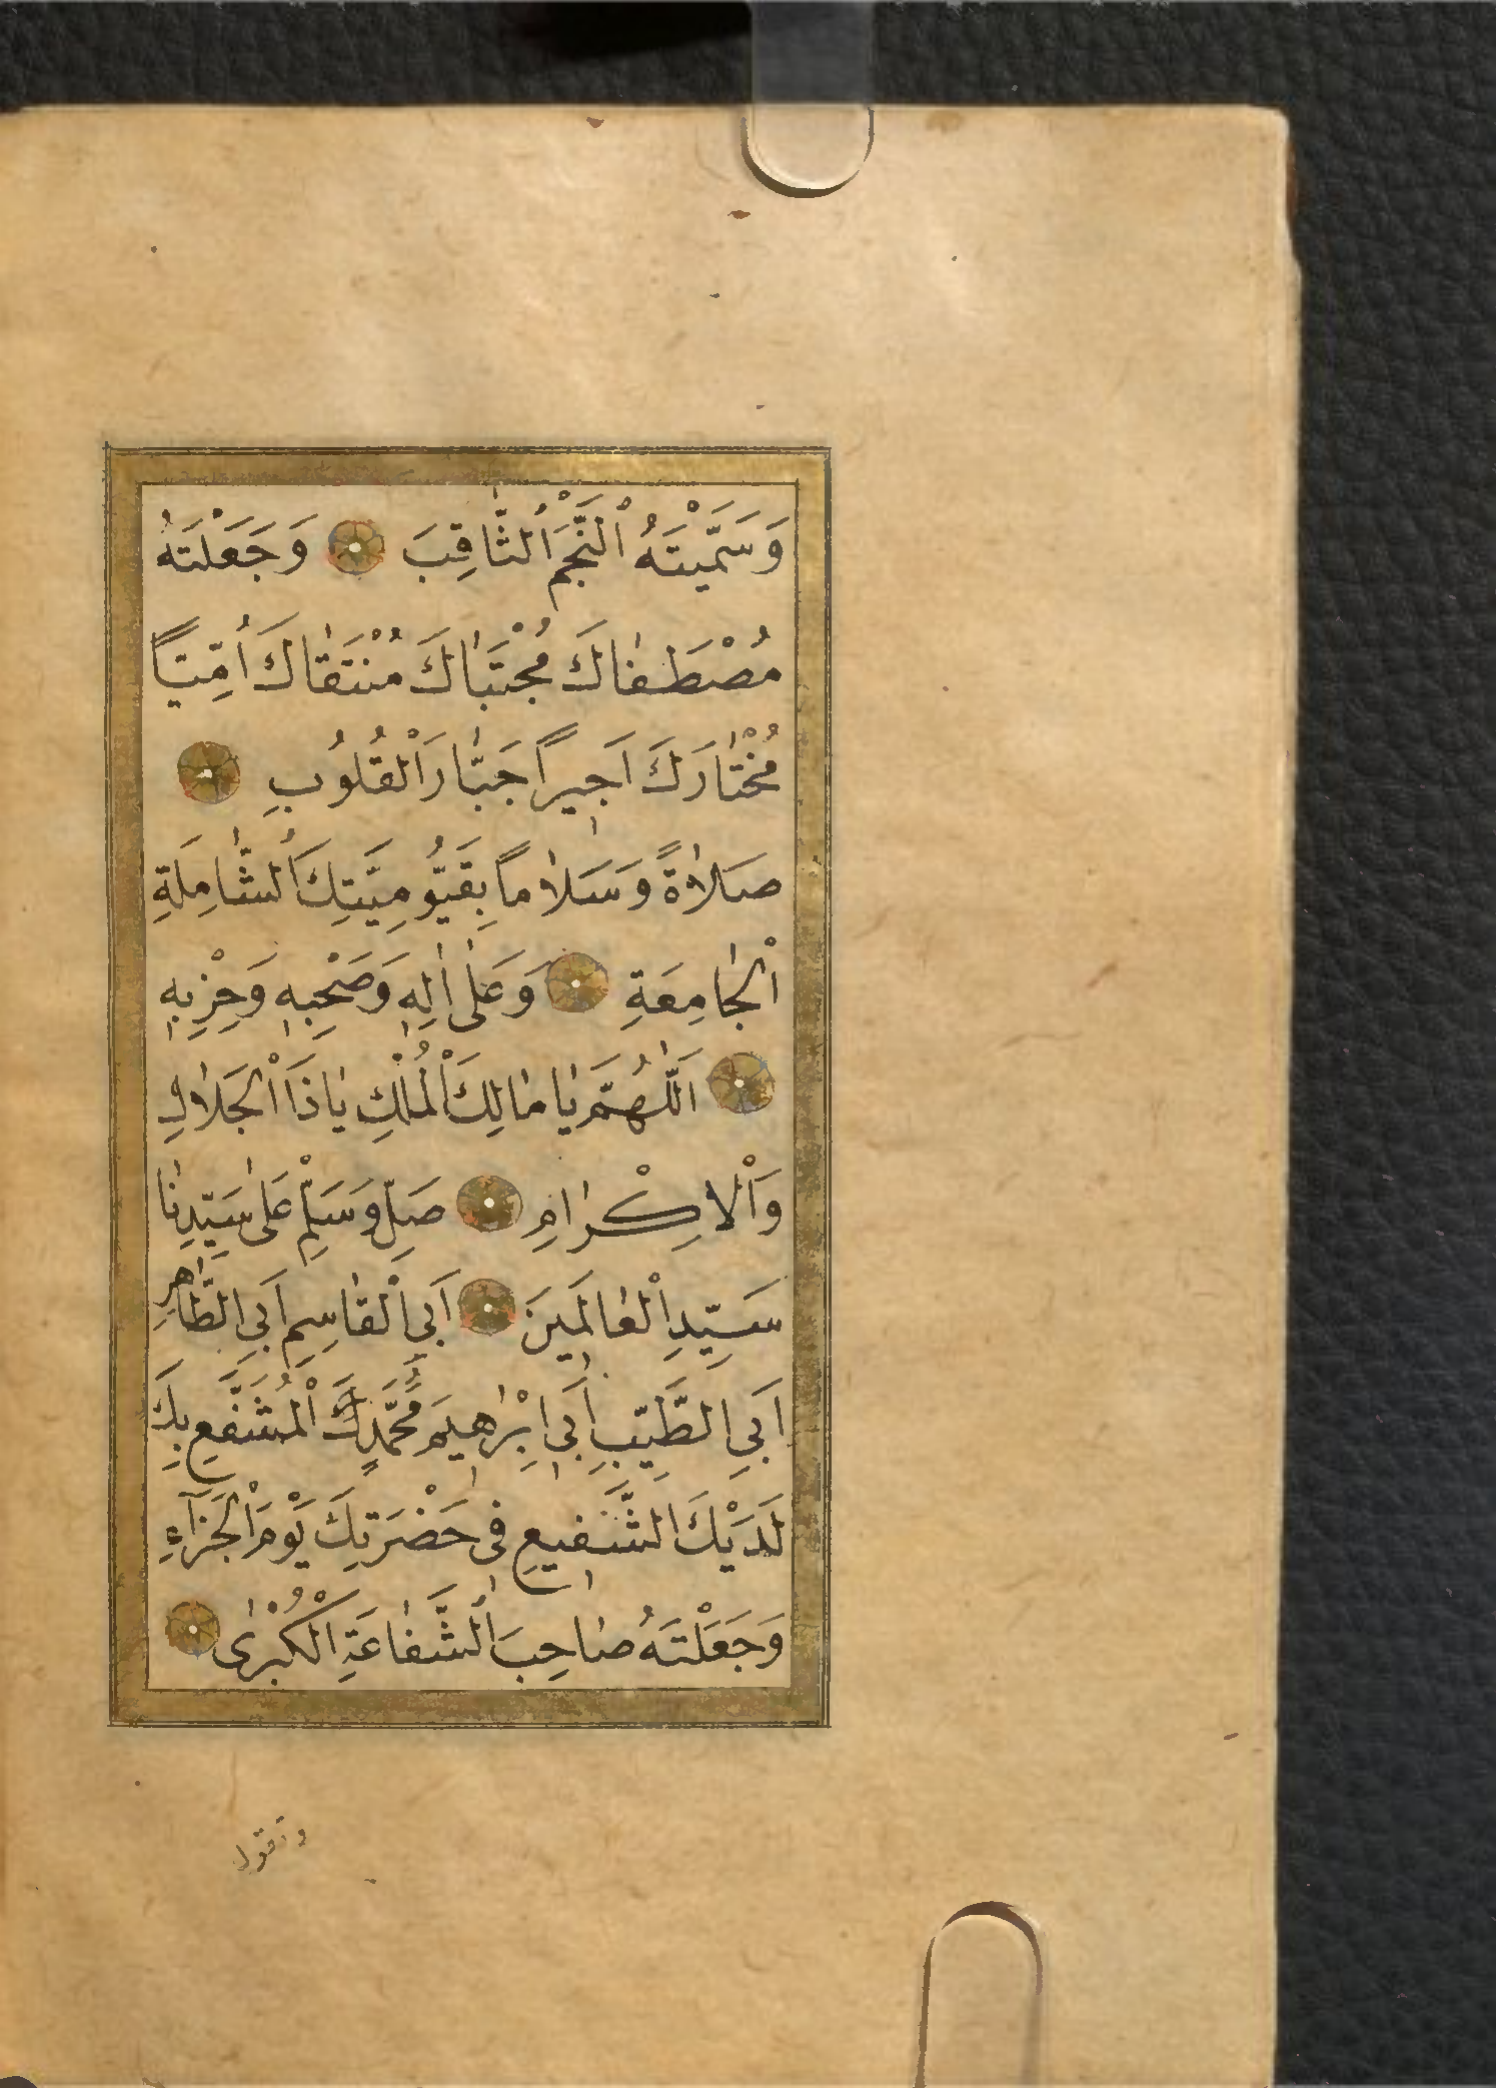 وَسَمَّيْتَهُ اْلنَّجْمَ اْلثَّاقِبَ وَجَعَلْتَهُ
مُصْطَفٰاكَ مُجْتَبٰاكَ مُنْتَقٰاكَ اُمِّيًّا
مُخْتٰارَكَ اَجِيراً جَبّٰارَ اْلقُلُوُبِ
صَلاٰةً وَسَلاٰماً بِقَيُّومِيَّتِكَ اْلشّٰامِلَةِ
اْلجٰامِعَةِ وَعَلٰى اٰلِهٖ وَصَحْبِهٖ وَحِزْبِهٖ
اَللّٰهُمَّ يٰا مٰالِكَ اْلمُلْكِ يٰا ذَا اْلجَلاٰلِ
وَاْلاِكْرٰامِ صَلِّ وَسَلِّمْ عَلٰى سَيِّدِنٰا
سَيِّدِ اْلعٰالَمِينَ اَبِي اْلقٰاسِمِ اَبِي الطّٰاهِرِ
اَبِي الطَّيِّبِ اَبِي اِبْرٰاهِيمَ مُحَمَّدِكَ اْلمُشَفَّعِ بِكَ
لَدَيْكَ الشَّفِيعِ فِى حَضْرَتِكَ يَوْمَ اْلجَزَآءِ
وَجَعَلْتَهُ صٰاحِبَ اْلشَّفٰاعَةِ اْلكُبْرٰى